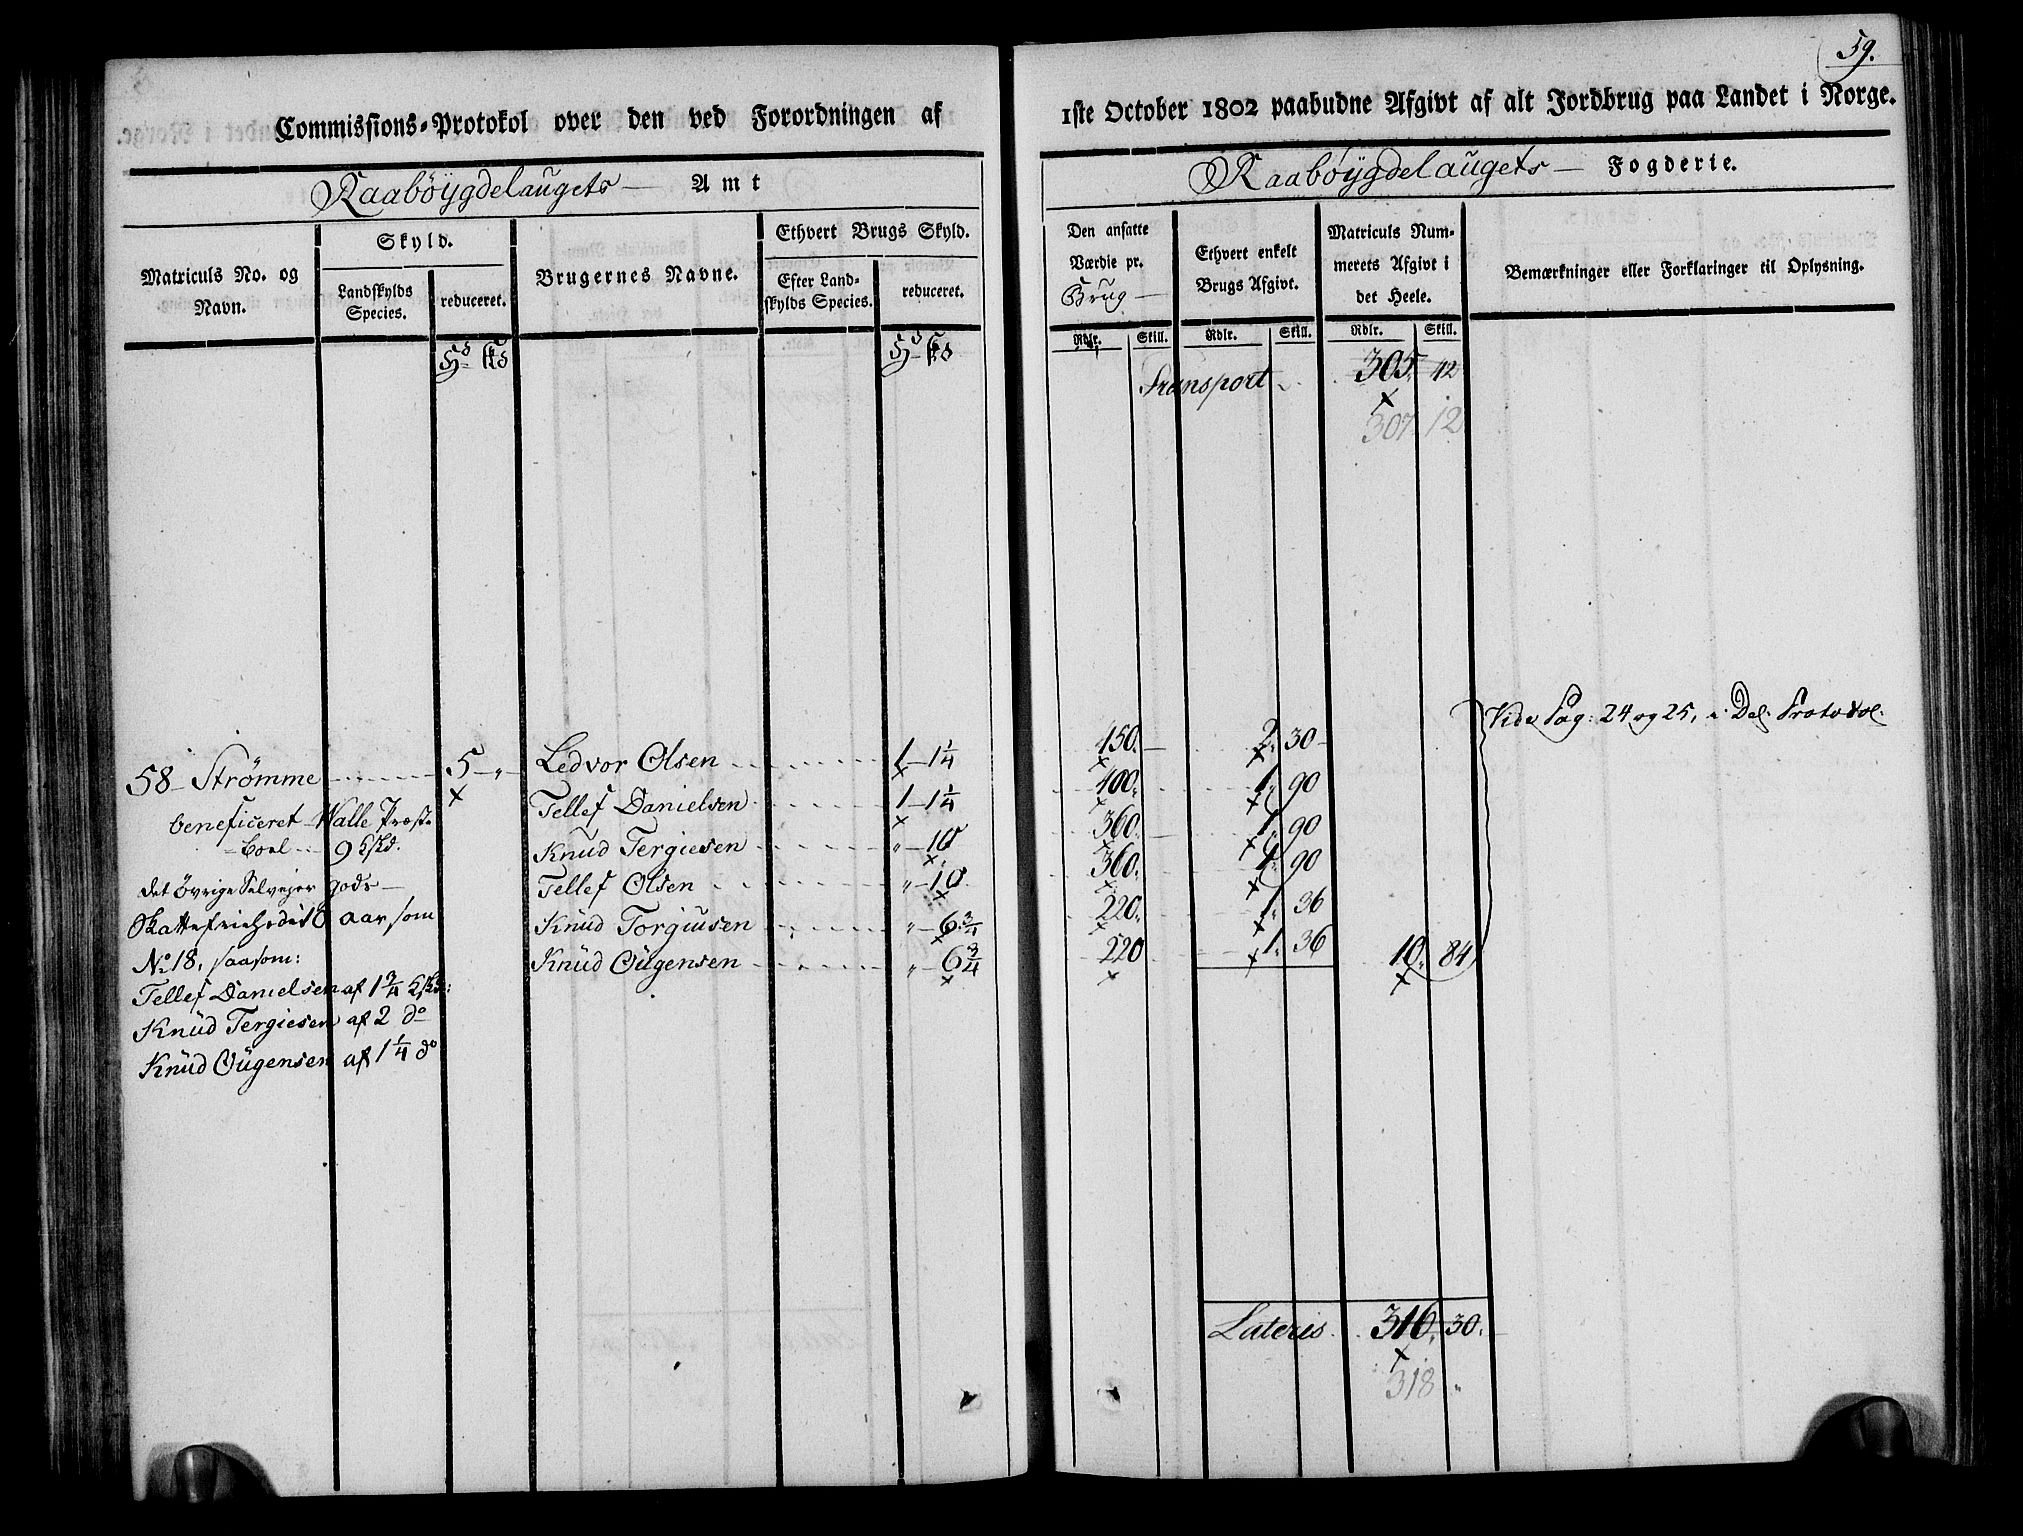 59.
Commissions-Protokol over den ved Forordningen af 1ste October 1802 paabudne Afgivt af alt Jordbrug paa Landet i Norge.
Raabøygdelaugets — Amt
Raabøygdelaugets — Fogderie.
Matriculs No. og Navn.
Skyld.
Landskylds Species.
reduceret.
Brugernes Navne.
Ethvert Brugs Skyld.
Efter Landskylds Species.
reduceret.
Den ansatte Værdie pr. Brug —
Ethvert enkelt Brugs Afgivt.
Matriculs Nummerets Afgivt i det Heele.
Bemærkninger eller Forklaringer til Oplysning.
Rdlr. Skill. Rdlr. Skill. Rdlr. Skill.
Transport 305. 42
307. 12
Vide Pag: 24 og 25, i Del. Protokol.
58 - Strømme 5 - „ - Ledvor Olsen 1 - 1 1/4 150. — 2. 30 -
Tellef Danielsen 1 - 1 1/4 400. 1. 90
beneficeret Walle Præste
Knud Tergiesen „ - 10 360. 1. 90
boel 9
Tellef Olsen „ - 10 360. 1. 90
det øvrige Selvejer gods —
Knud Torgiusen „ - 6 3/4 220. 1. 36
Skattefriehed i 10 aar, som
Knud Ougensen „ - 6 3/4 220 1. 36 10. 84
No 18, saasom:
Tellef Danielsen af 1 3/4
Knud Tergiesen af 2 do
Knud Ougensen af 1 1/4 do
Lateris. 316. 30.
318 „